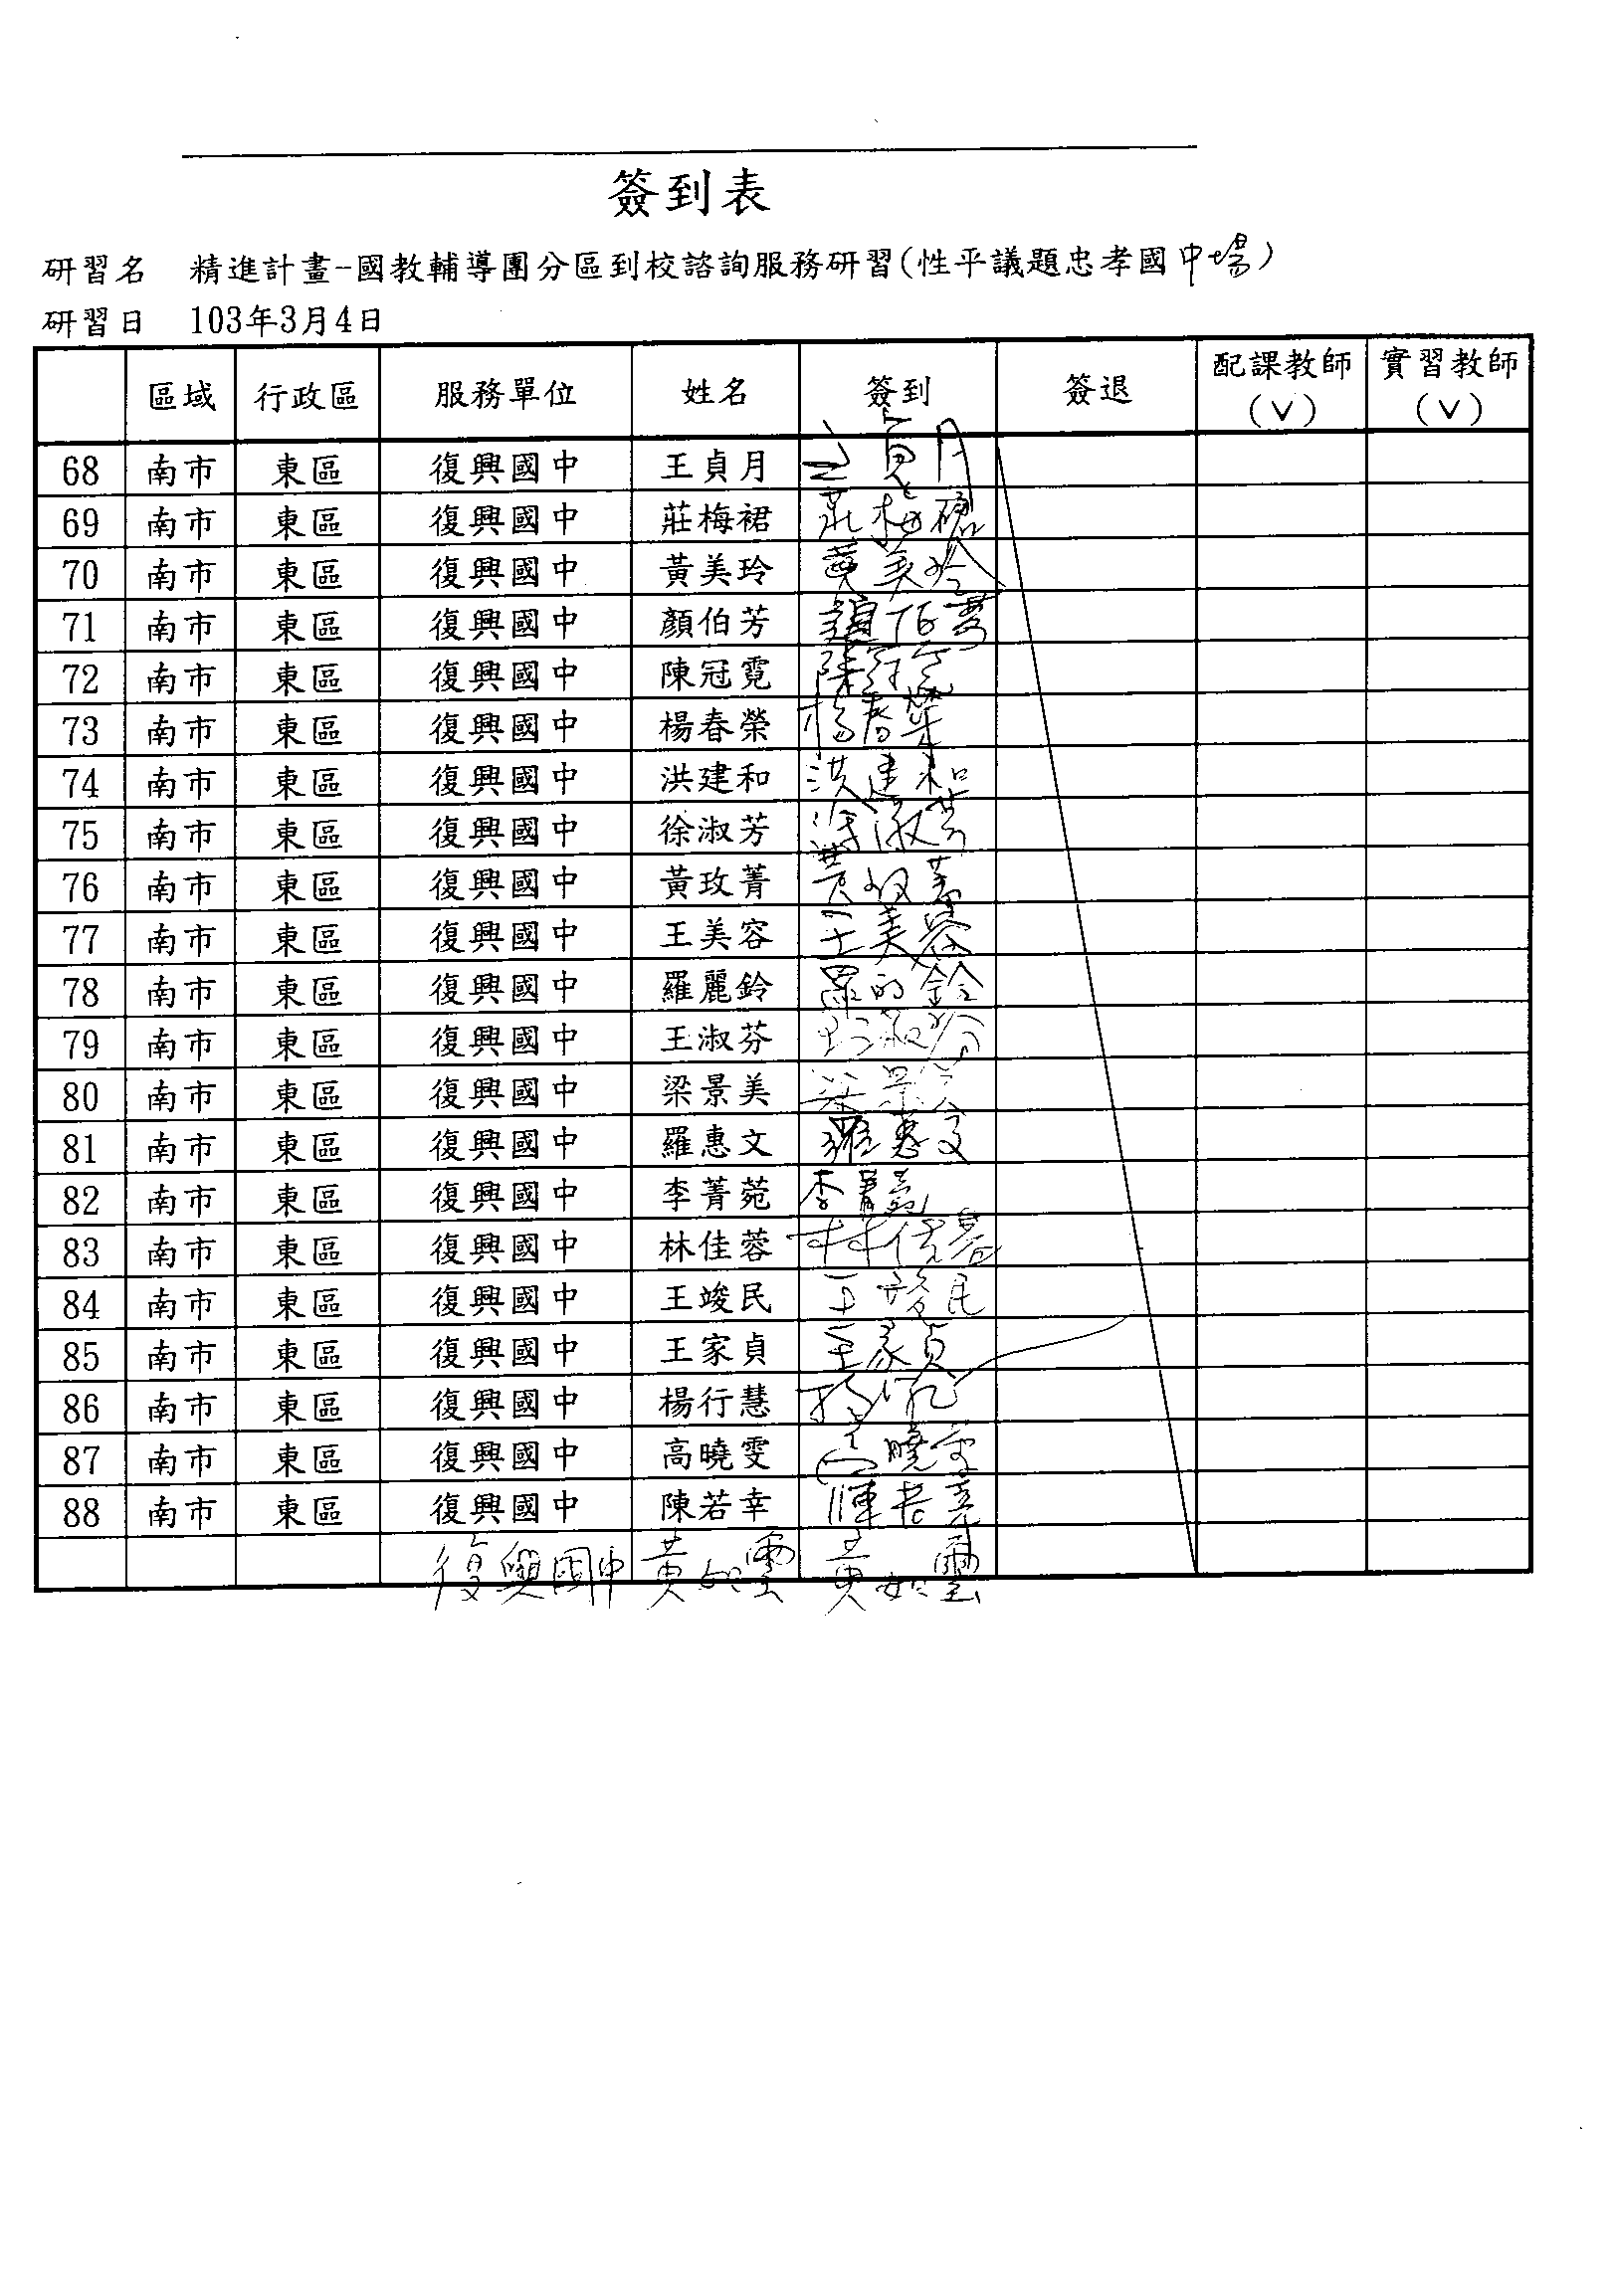 簽到表
研習名 精進計畫-國教輔導團分區到校諮詢服務研習(性平議題忠孝國中場)
研習日 103年3月4日
區域 行政區 服務單位 姓名 簽到 簽退 配課教師(V) 實習教師(V)
68 南市 東區 復興國中 王貞月 王貞月
69 南市 東區 復興國中 莊梅裙 莊梅裙
70 南市 東區 復興國中 黃美玲 黃美玲
71 南市 東區 復興國中 顏伯芳 顏伯芳
72 南市 東區 復興國中 陳冠霓 陳冠霓
73 南市 東區 復興國中 楊春榮 楊春榮
74 南市 東區 復興國中 洪建和 洪建和
75 南市 東區 復興國中 徐淑芳 徐淑芳
76 南市 東區 復興國中 黃玫菁 黃玫菁
77 南市 東區 復興國中 王美容 王美容
78 南市 東區 復興國中 羅麗鈴
79 南市 東區 復興國中 王淑芬 王淑芬
80 南市 東區 復興國中 梁景美 梁景美
81 南市 東區 復興國中 羅惠文 羅惠文
82 南市 東區 復興國中 李菁菀 李菁菀
83 南市 東區 復興國中 林佳蓉 林佳蓉
84 南市 東區 復興國中 王竣民 王竣民
85 南市 東區 復興國中 王家貞 王家貞
86 南市 東區 復興國中 楊行慧
87 南市 東區 復興國中 高曉雯 高曉雯
88 南市 東區 復興國中 陳若幸 陳若幸
復興國中 黃如璽 黃如璽